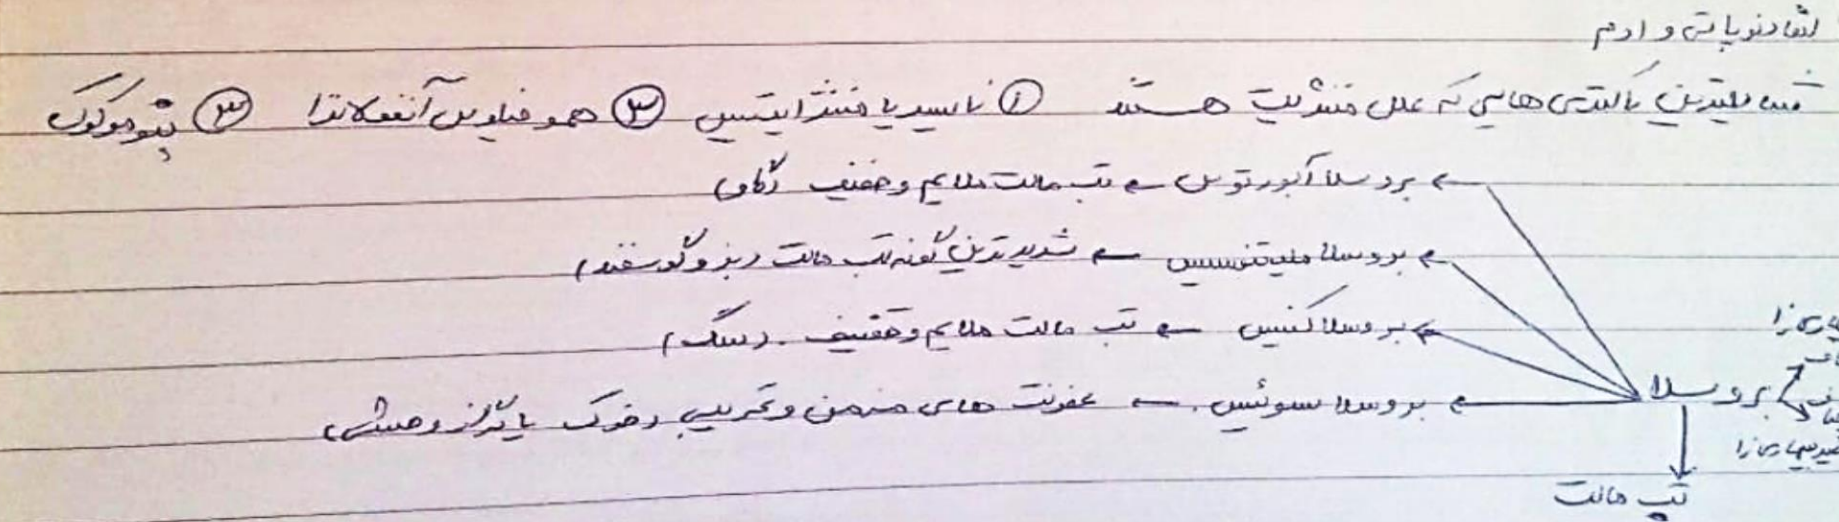 لنفادنوپاتی و ادم
شایعترین باکتری هایی که علل مننژیت هستند ① نایسریا مننژایتیس ② هموفیلوس آنفولانزا ③ پنوموکوک
← بروسلا آبورتوس ← تب مالت ملایم و خفیف (گاو)
← بروسلا ملیتنسیس ← شدیدترین گونه تب مالت (بز و گوسفند)
← بروسلا کنیس ← تب مالت ملایم و خفیف. (سگ)
← بروسلا سوئیس. ← عفونت های مزمن و تخریبی (خوک یا گراز وحشی)
بروسلا
تب مالت